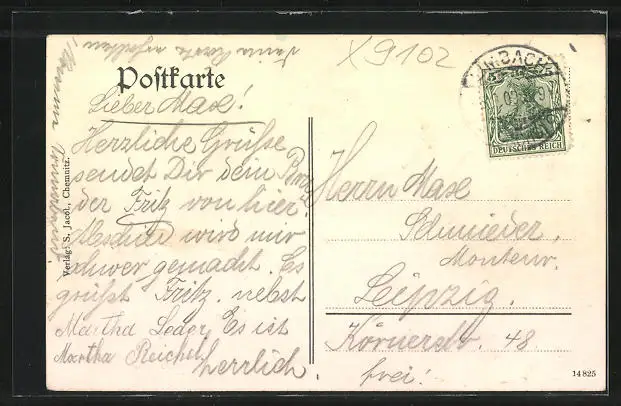 Postkarte
X 9102
Lieber Max!
Herzliche Grüsse
sendet Dir dein Bru-
der Fritz von hier!
wird mir
schwer gemacht. Es
grüsst Fritz. nebst
Martha Leder. Es ist
Martha Reichel.
herrlich.
Karte erhalten
Verlag: S. Jacol., Chemnitz.
LIMBACH
DEUTSCHES REICH
Herrn Max
Schmieder,
Monteur.
Leipzig.
Körnerstr. 48
frei!
14825